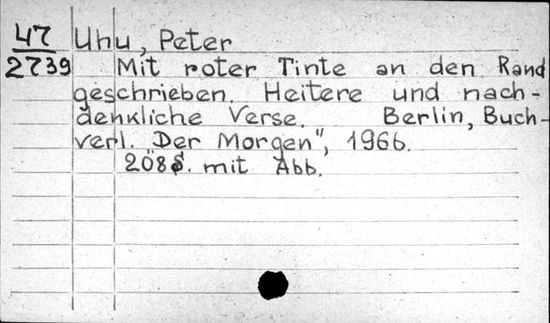 47 Uhu, Peter
2739 Mit roter Tinte an den Rand
geschrieben. Heitere und nach-
denkliche Verse. Berlin, Buch-
verl. Der Morgen", 1966.
208 S. mit Abb.